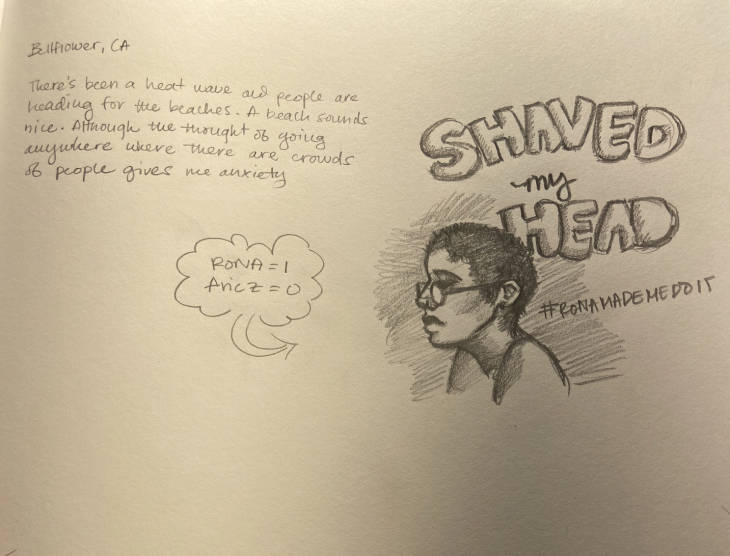 Bellflower, CA
There's been a heat wave and people are
heading for the beaches. A beach sounds
nice. Although the thought of going
anywhere where there are crowds
of people gives me anxiety
RONA = 1
Aricz = 0
SHAVED
my
HEAD
#RONAMADEMEDOIT